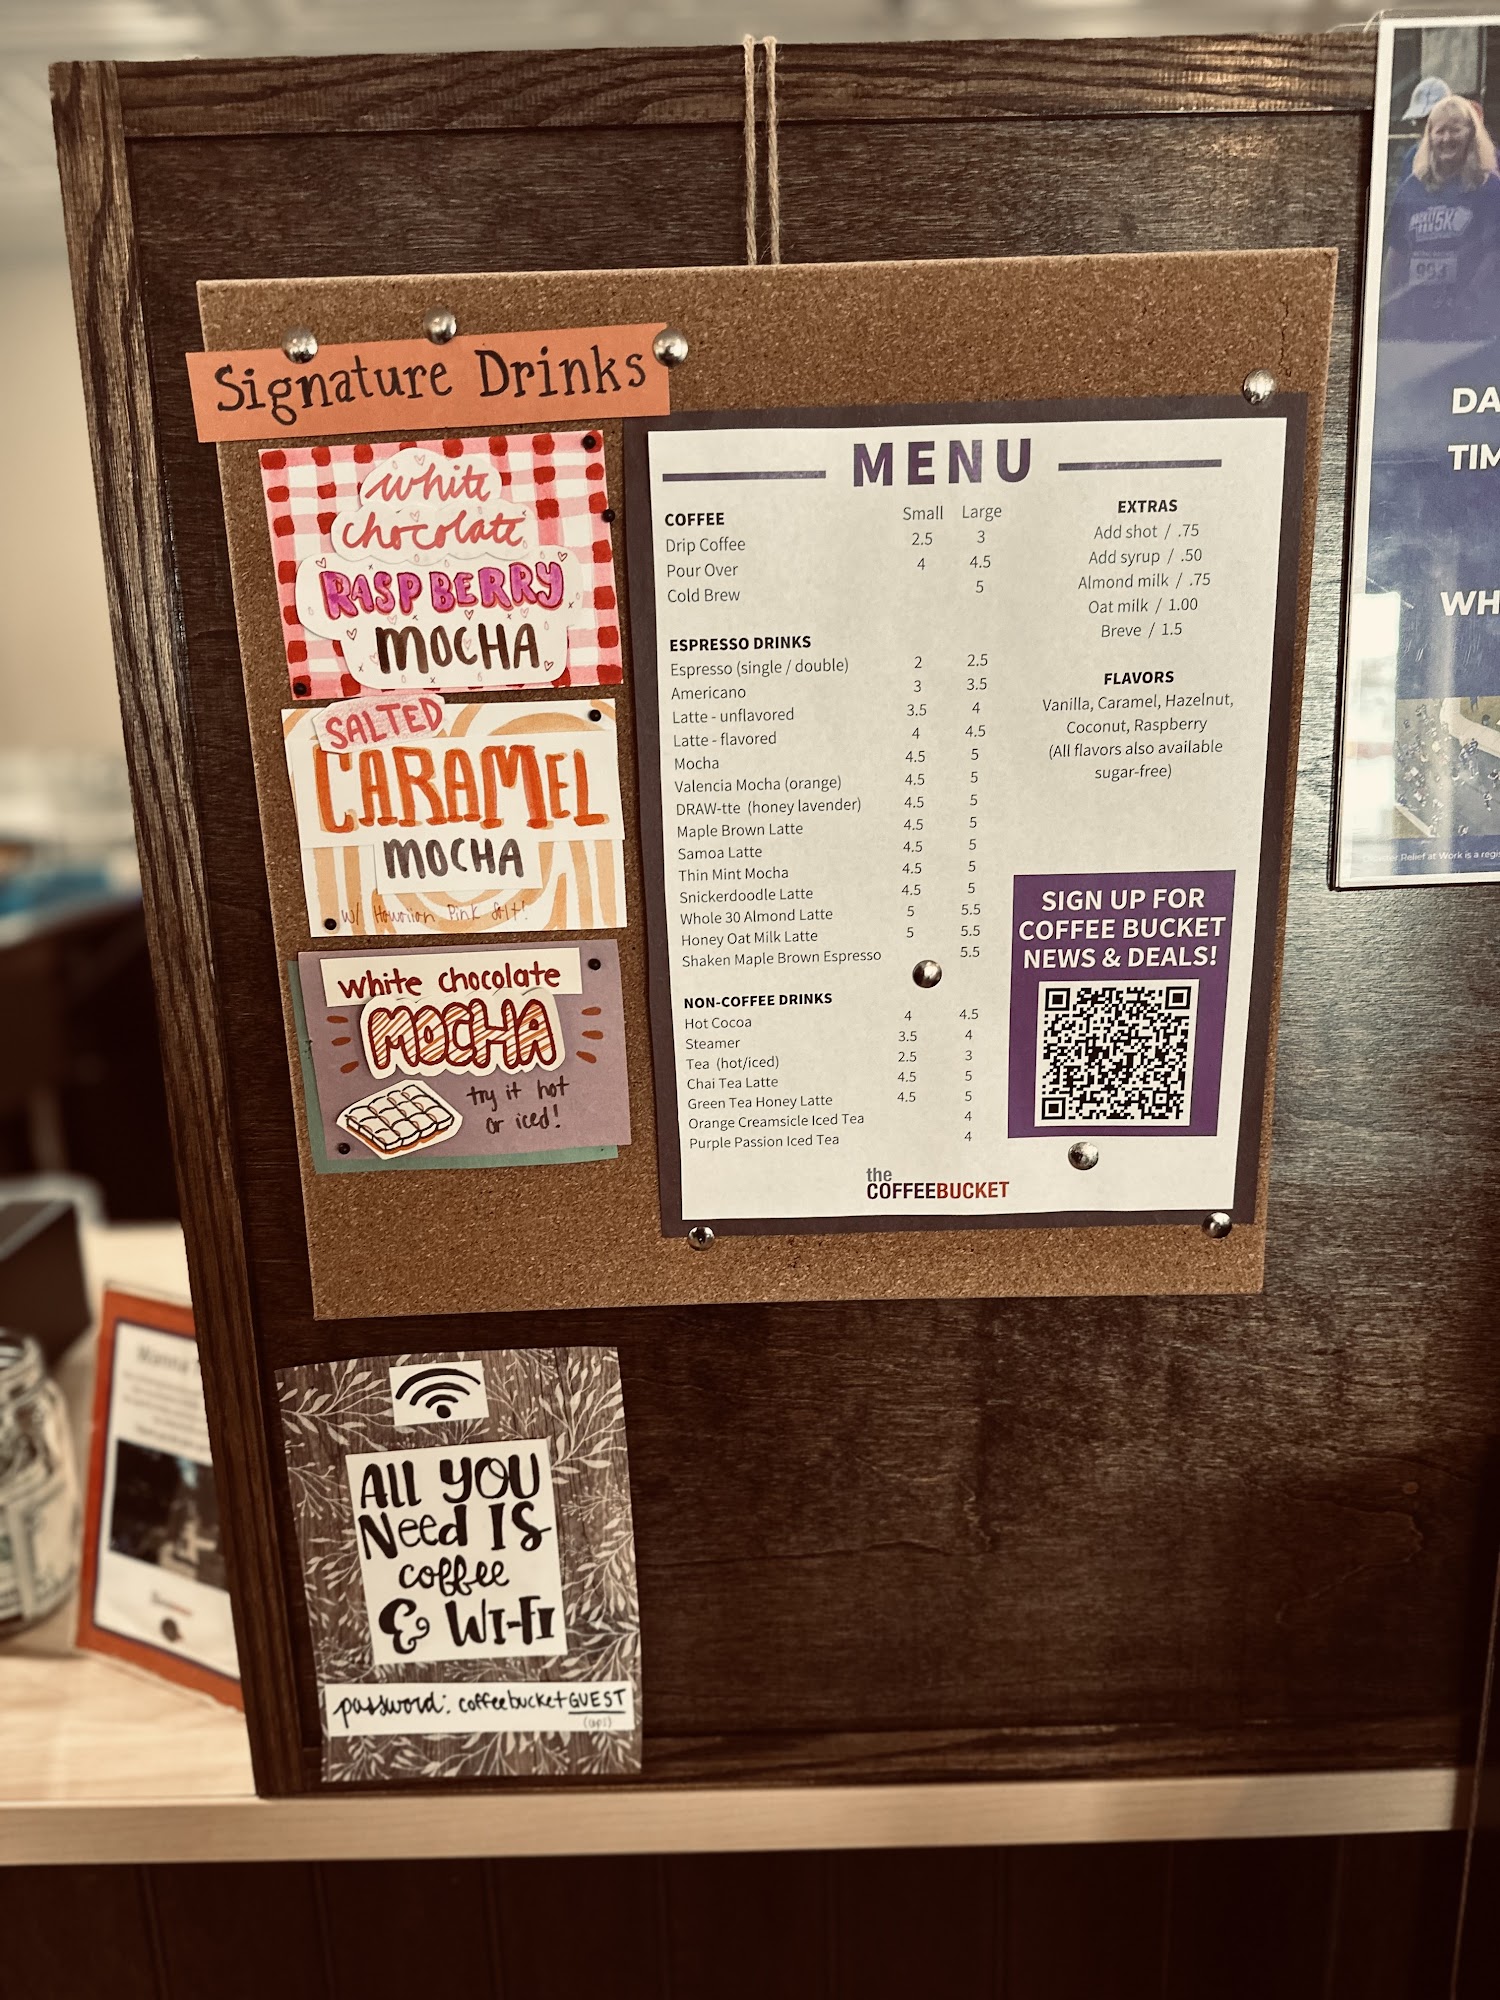 Signature Drinks
white
chocolate
RASPBERRY
MOCHA
SALTED
CARAMEL
MOCHA
w/ Hawaiian Pink Salt!
white chocolate
MOCHA
try it hot
or iced!
MENU
COFFEE Small Large
Drip Coffee 2.5 3
Pour Over 4 4.5
Cold Brew 5
ESPRESSO DRINKS
Espresso (single / double) 2 2.5
Americano 3 3.5
Latte - unflavored 3.5 4
Latte - flavored 4 4.5
Mocha 4.5 5
Valencia Mocha (orange) 4.5 5
DRAW-tte (honey lavender) 4.5 5
Maple Brown Latte 4.5 5
Samoa Latte 4.5 5
Thin Mint Mocha 4.5 5
Snickerdoodle Latte 4.5 5
Whole 30 Almond Latte 5 5.5
Honey Oat Milk Latte 5 5.5
Shaken Maple Brown Espresso 5.5
NON-COFFEE DRINKS
Hot Cocoa 4 4.5
Steamer 3.5 4
Tea (hot/iced) 2.5 3
Chai Tea Latte 4.5 5
Green Tea Honey Latte 4.5 5
Orange Creamsicle Iced Tea 4
Purple Passion Iced Tea 4
EXTRAS
Add shot / .75
Add syrup / .50
Almond milk / .75
Oat milk / 1.00
Breve / 1.5
FLAVORS
Vanilla, Caramel, Hazelnut,
Coconut, Raspberry
(All flavors also available
sugar-free)
SIGN UP FOR
COFFEE BUCKET
NEWS & DEALS!
the
COFFEEBUCKET
All you
Need IS
coffee
& WI-FI
password: coffeebucketGUEST
5K
993
DA
TIM
WH
Relief at Work is a regis